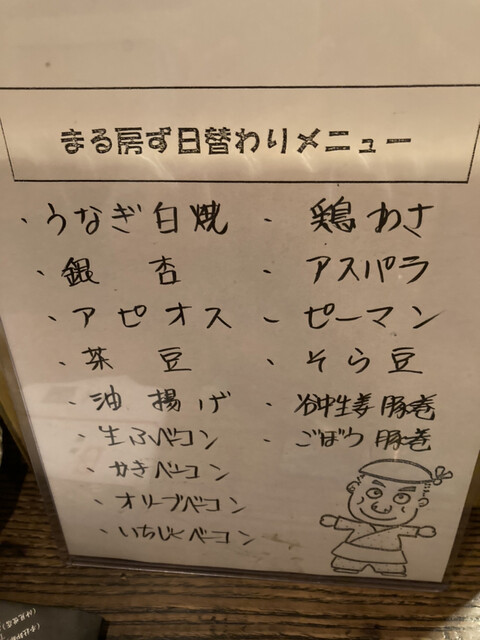 まる房ず日替わりメニュー
・うなぎ白焼
・銀杏
・アピオス
・茶豆
・油揚げ
・生ふベーコン
・かきベーコン
・オリーブベーコン
・いちじくベーコン
・鶏わさ
・アスパラ
・ピーマン
・そら豆
・谷中生姜豚巻
・ごぼう豚巻